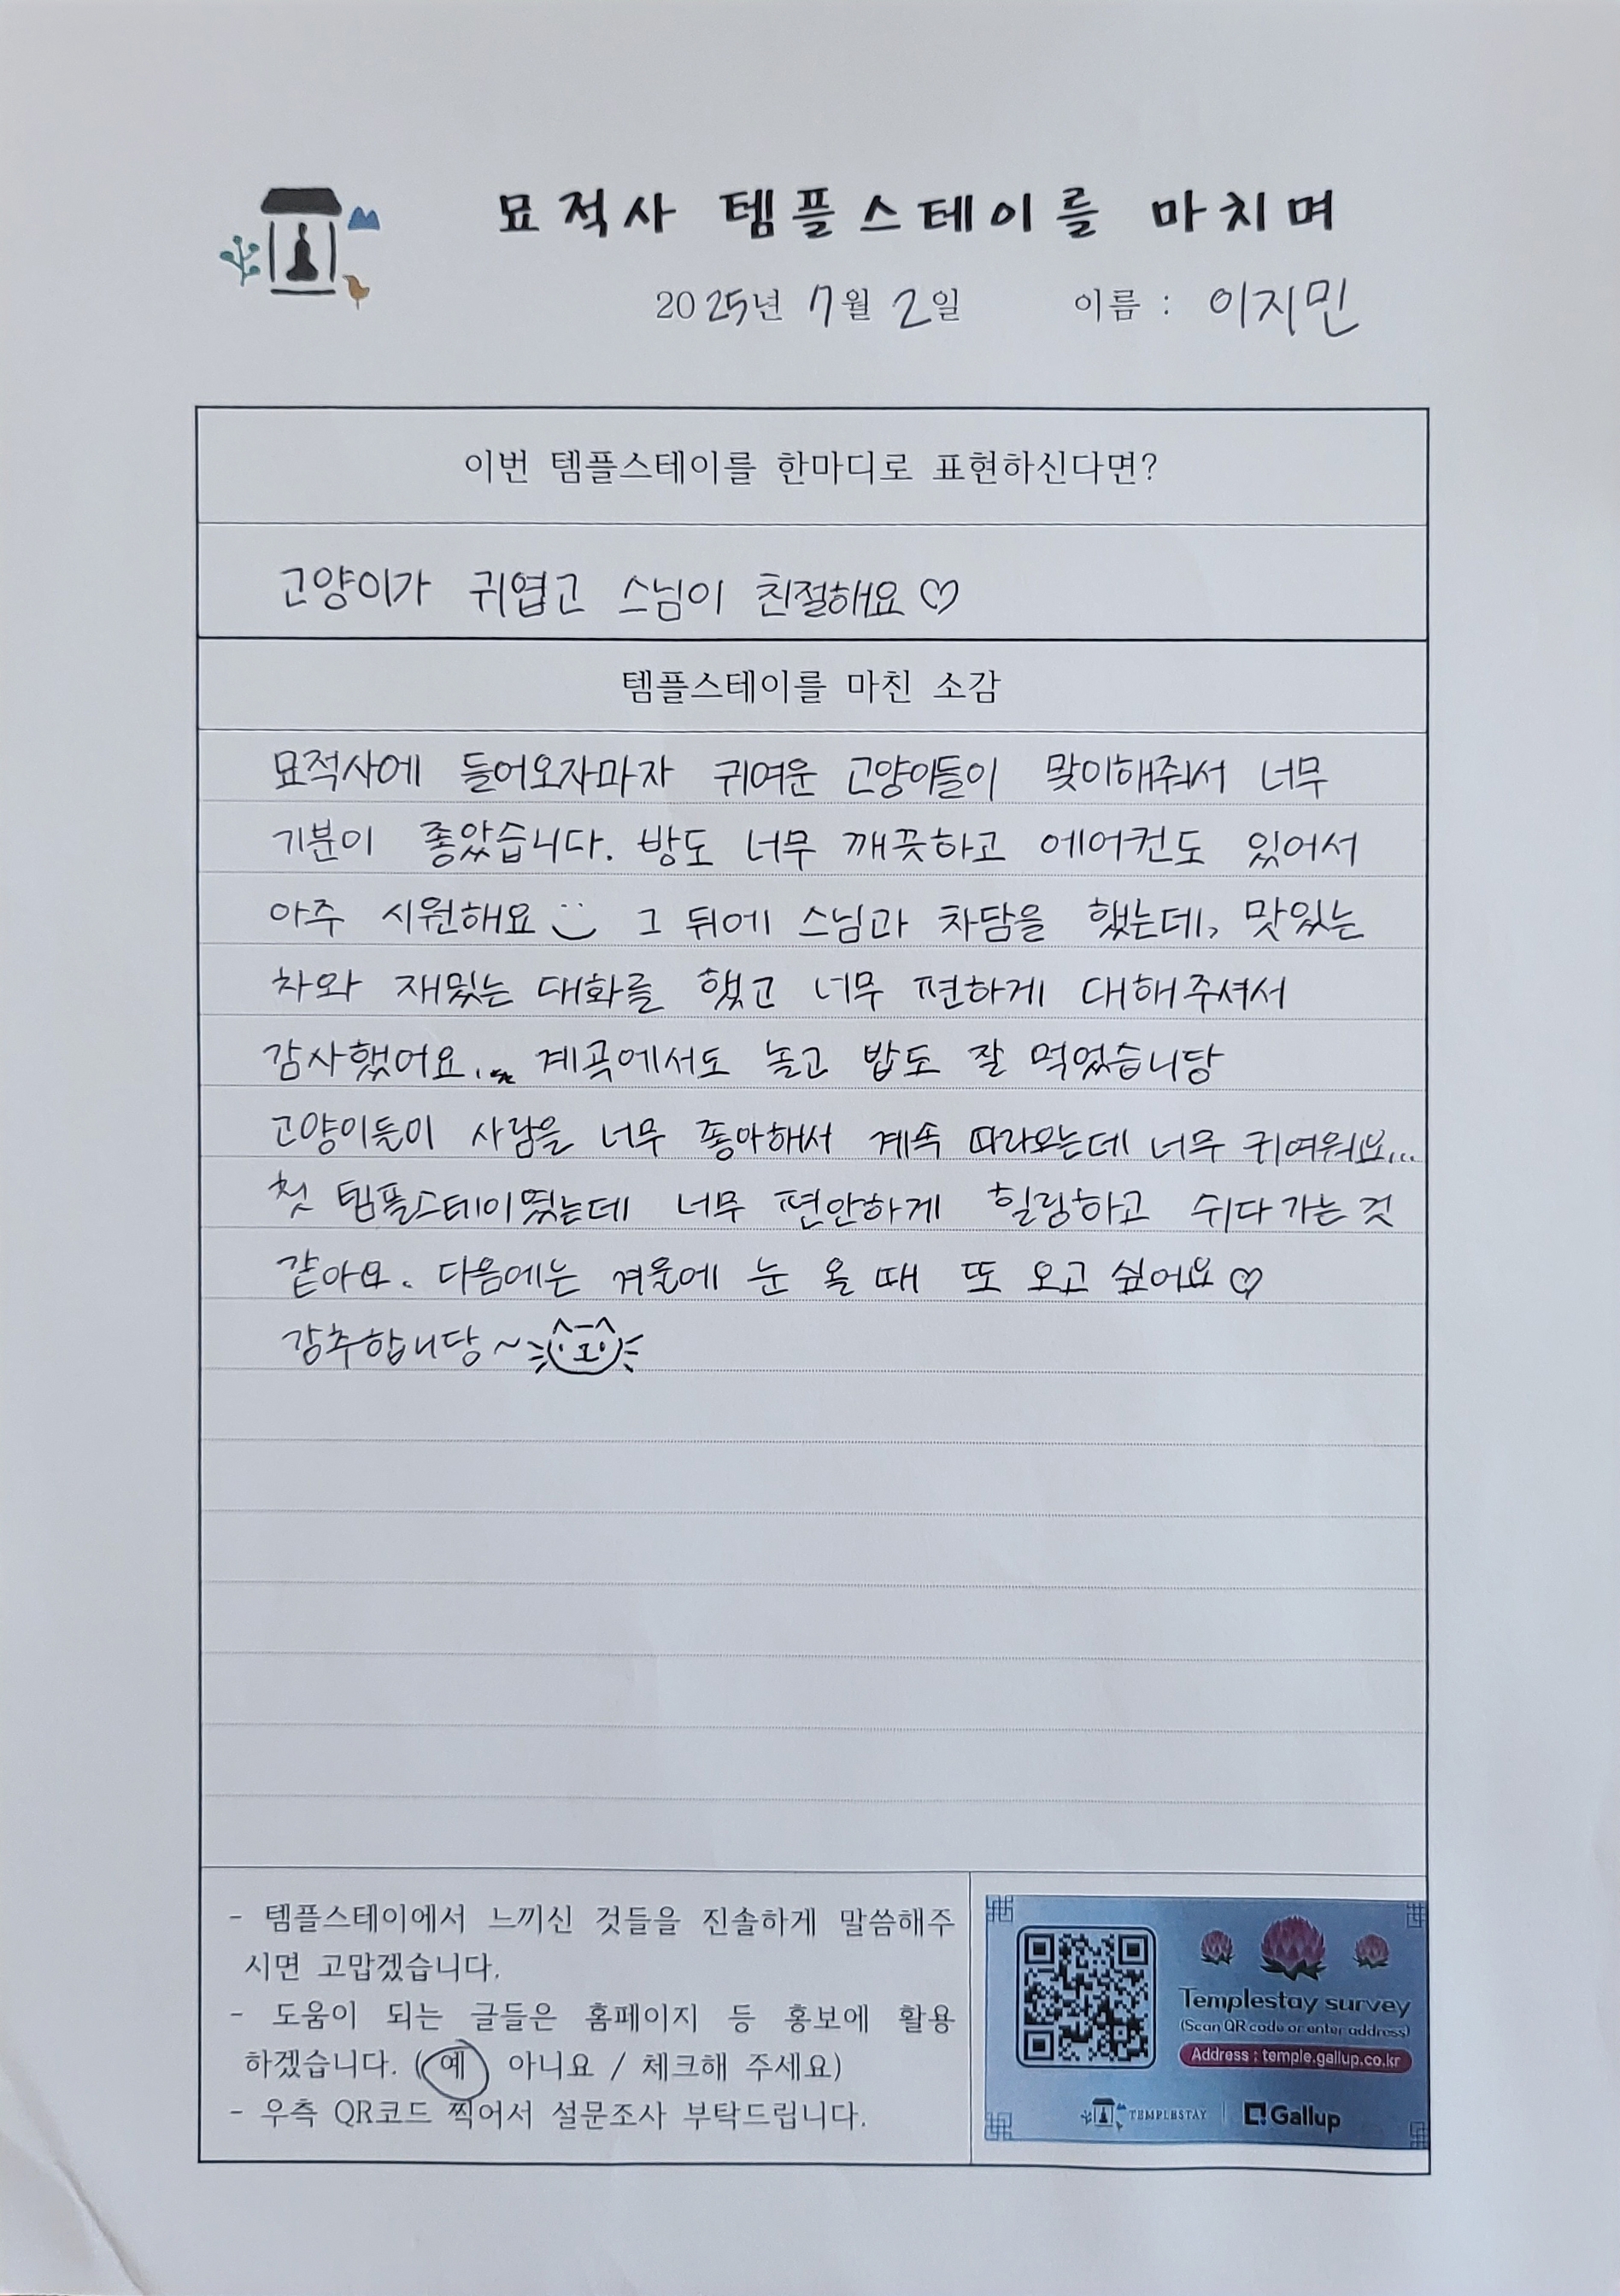 묘적사 템플스테이를 마치며
2025년 7월 2일 이름 : 이지민
이번 템플스테이를 한마디로 표현하신다면?
고양이가 귀엽고 스님이 친절해요♡
템플스테이를 마친 소감
묘적사에 들어오자마자 귀여운 고양이들이 맞이해줘서 너무
기분이 좋았습니다. 방도 너무 깨끗하고 에어컨도 있어서
아주 시원해요 그 뒤에 스님과 차담을 했는데, 맛있는
차와 재밌는 대화를 했고 너무 편하게 대해주셔서
감사했어요. 계곡에서도 놀고 밥도 잘 먹었습니당
고양이들이 사람을 너무 좋아해서 계속 따라오는데 너무 귀여워요...
첫 템플스테이였는데 너무 편안하게 힐링하고 쉬다 가는 것
같아요. 다음에는 겨울에 눈 올 때 또 오고 싶어요♡
강추합니당~
- 템플스테이에서 느끼신 것들을 진솔하게 말씀해주
시면 고맙겠습니다.
- 도움이 되는 글들은 홈페이지 등 홍보에 활용
하겠습니다. (예 아니요 / 체크해 주세요)
- 우측 QR코드 찍어서 설문조사 부탁드립니다.
Templestay survey
(Scan QR code or enter address)
Address : temple.gallup.co.kr
TEMPLESTAY Gallup